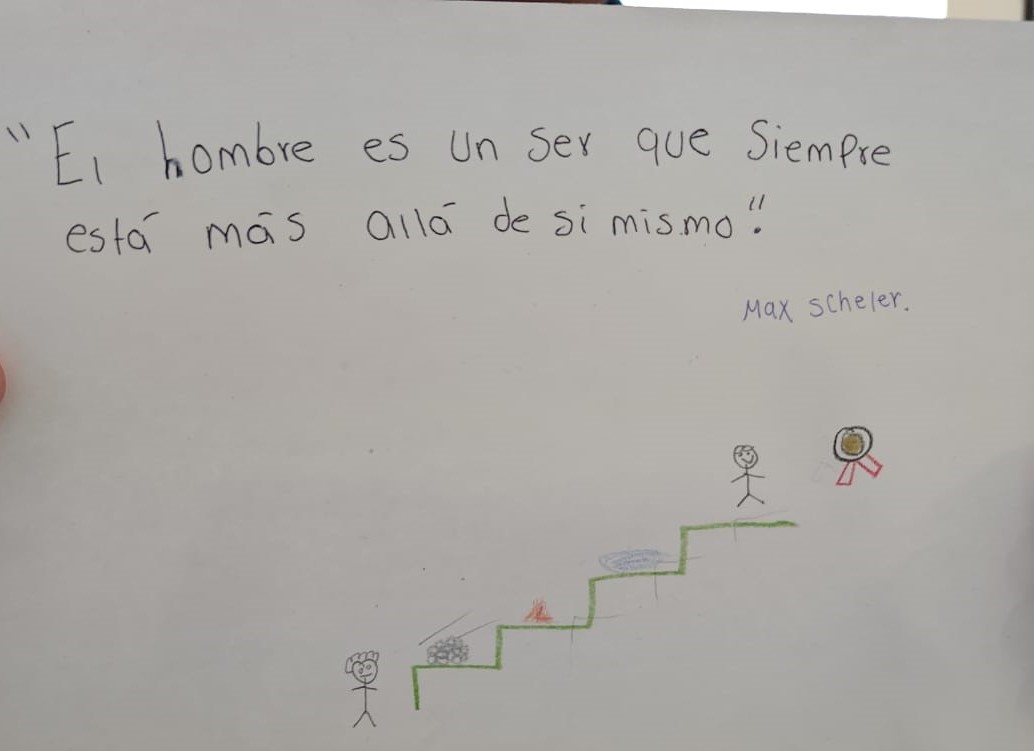 "El hombre es un ser que siempre
está más allá de si mismo".
Max scheler.